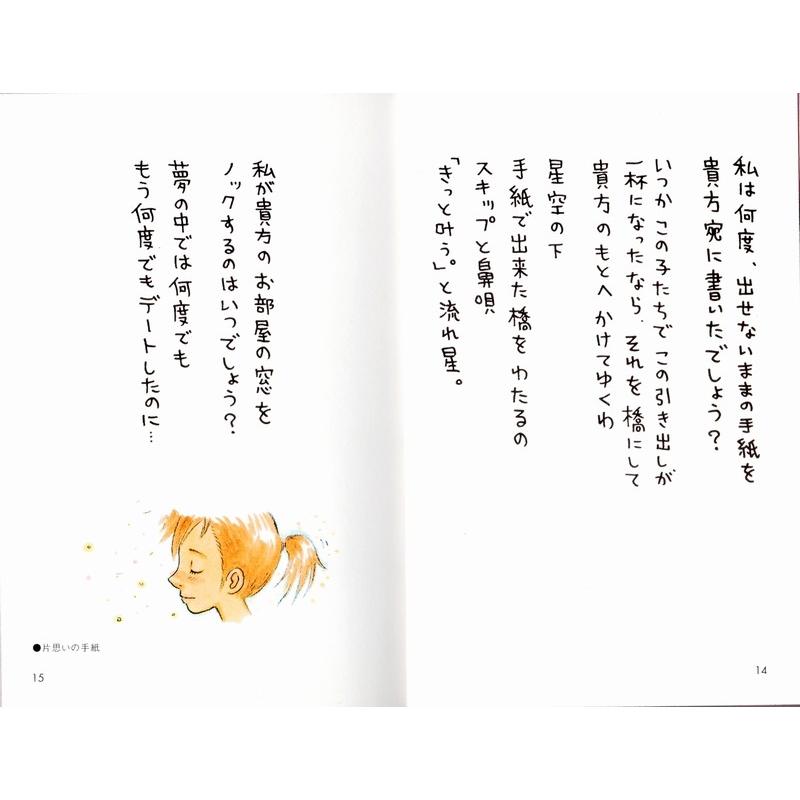 私は何度、出せないままの手紙を
貴方宛に書いたでしょう？
いつか この子たちで この引き出しが
一杯になったなら、それを 橋にして
貴方 のもとへ かけてゆくわ
星空の下
手紙で出来た橋を わたるの
スキップと鼻唄
「きっと叶う。」と流れ星。
14
私が貴方の お部屋の窓を
ノックするのはいつでしょう？
夢の中では何度でも
もう何度でもデートしたのに…
●片思いの手紙
15